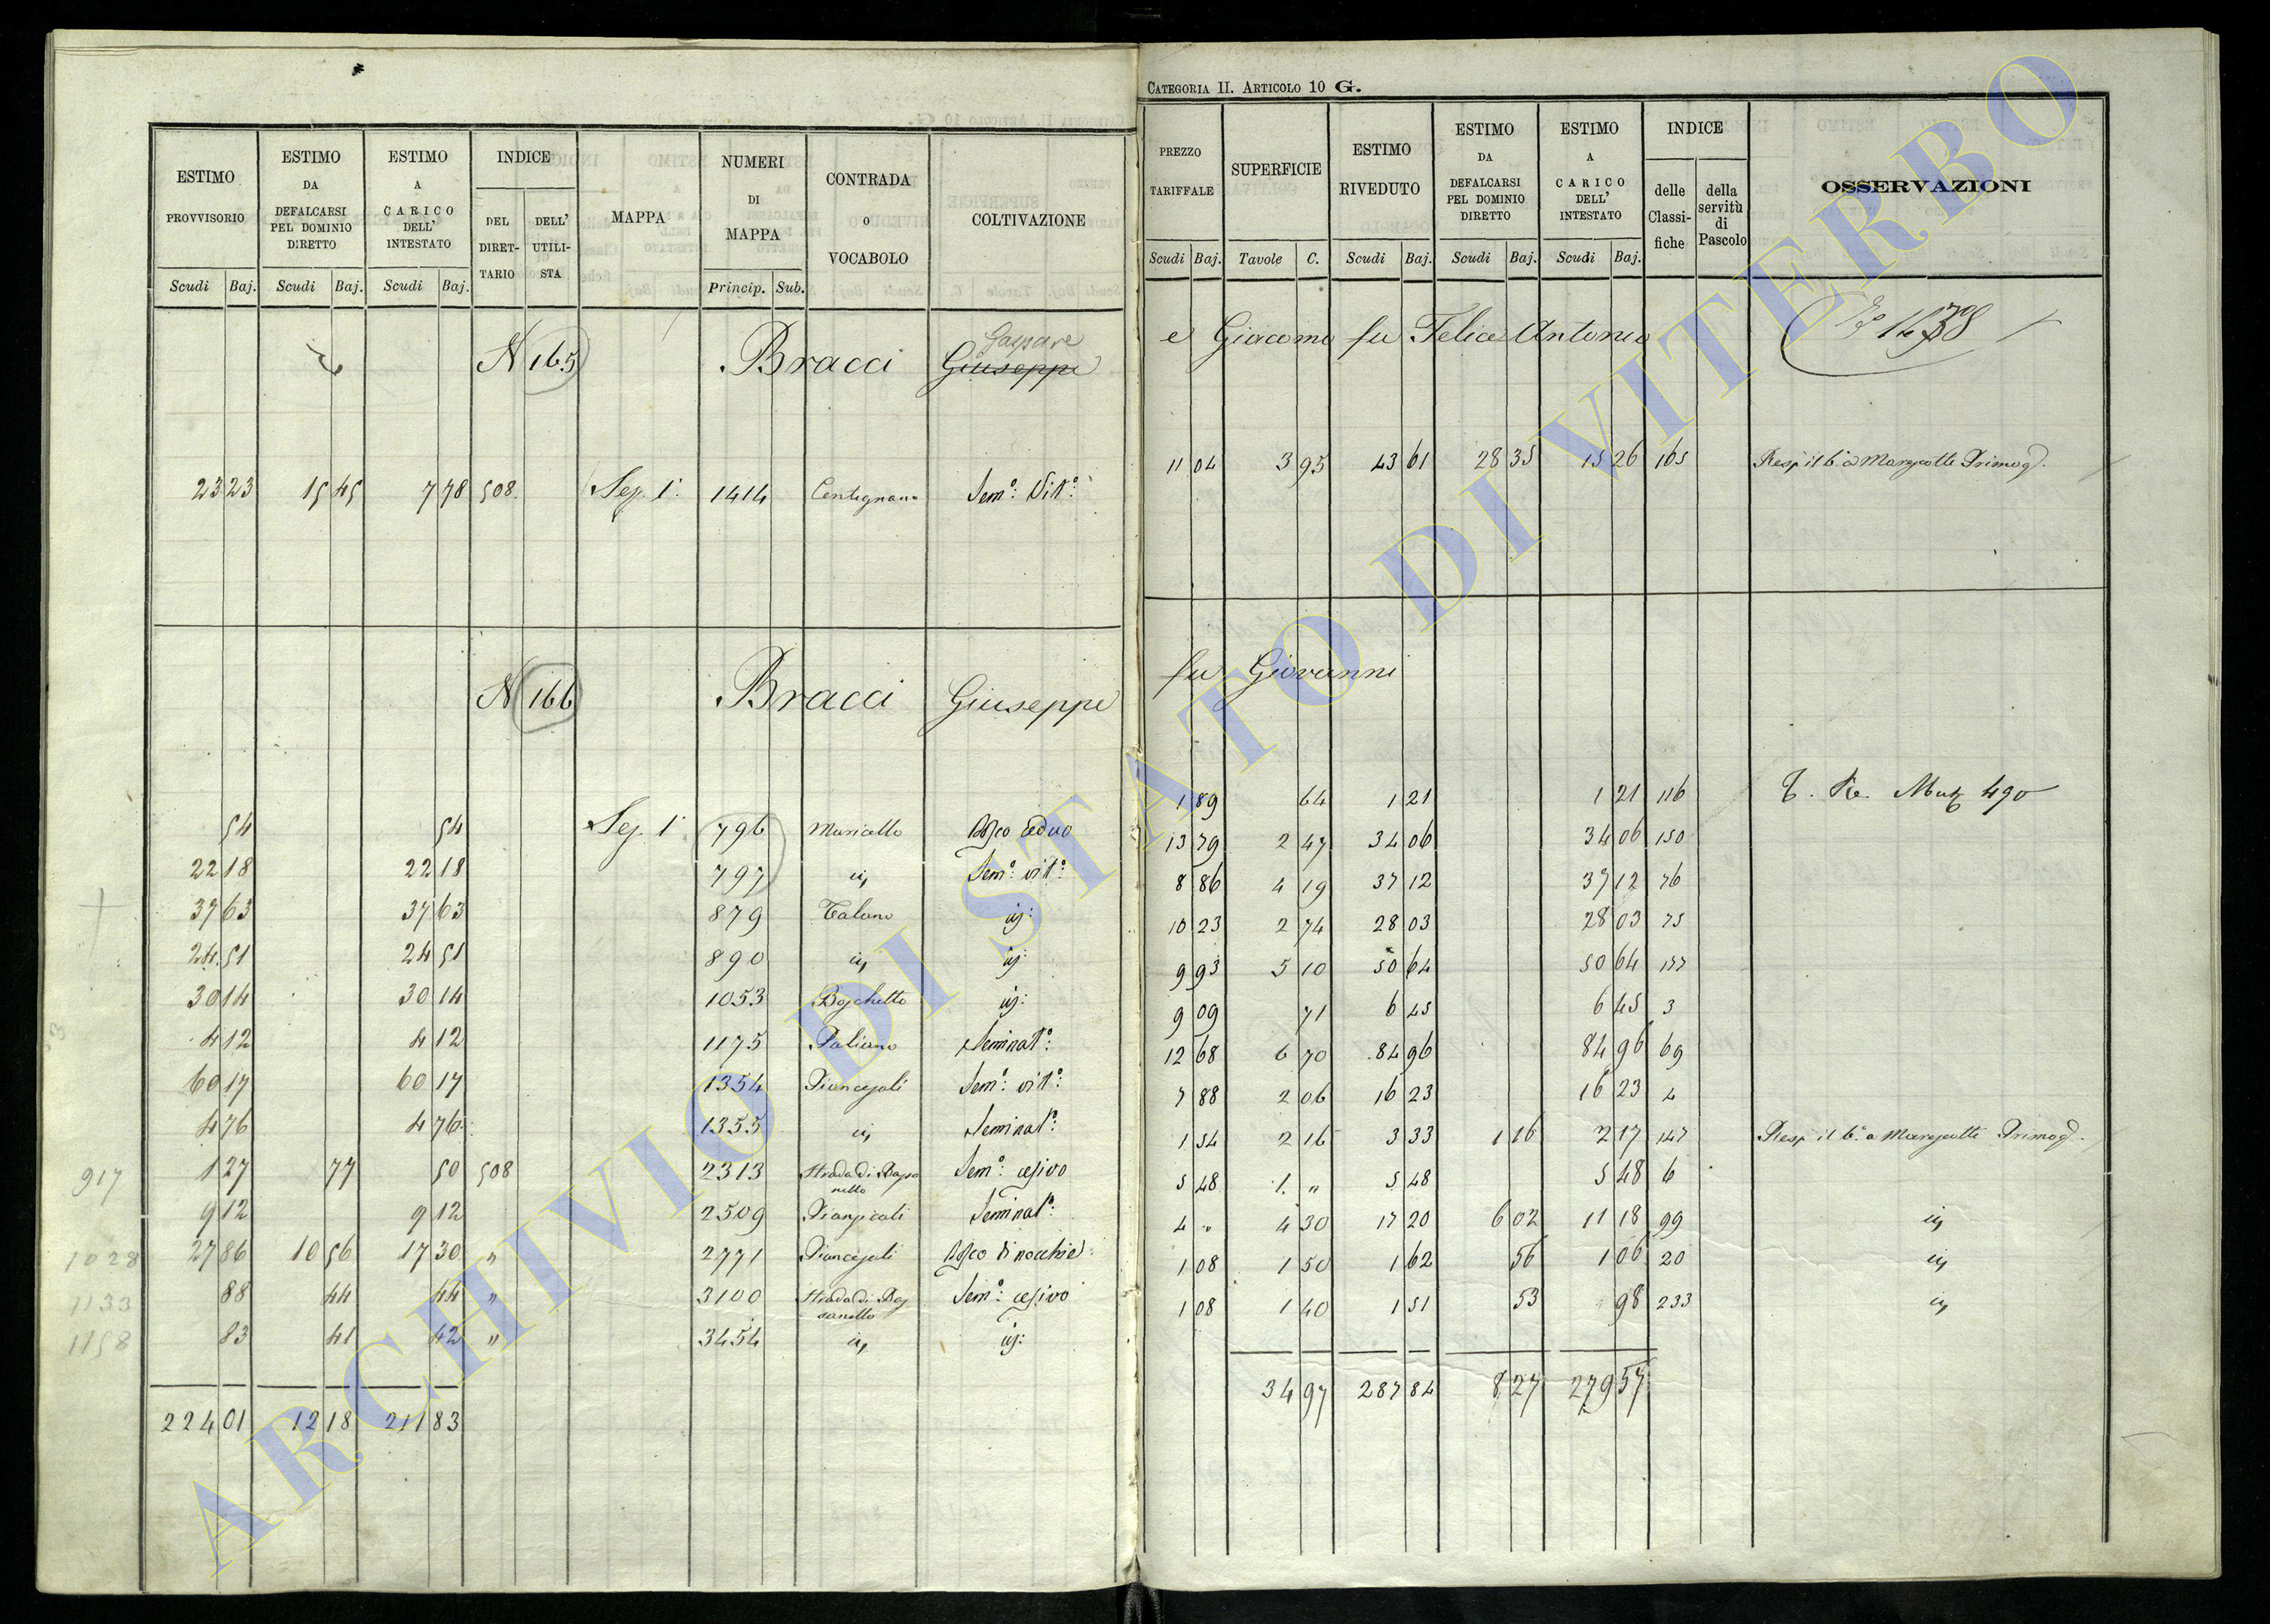 CATEGORIA II. ARTICOLO 10 G.
ESTIMO PROVVISORIO Scudi Baj.
ESTIMO DA DEFALCARSI PEL DOMINIO DIRETTO Scudi Baj.
ESTIMO A CARICO DELL' INTESTATO Scudi Baj.
INDICE DEL DIRETTARIO DELL' UTILISTA
MAPPA
NUMERI DI MAPPA Princip. Sub.
CONTRADA o VOCABOLO
COLTIVAZIONE
PREZZO TARIFFALE Scudi Baj.
SUPERFICIE Tavole C.
ESTIMO RIVEDUTO Scudi Baj.
ESTIMO DA DEFALCARSI PEL DOMINIO DIRETTO Scudi Baj.
ESTIMO A CARICO DELL' INTESTATO Scudi Baj.
INDICE delle Classifiche della servitù di Pascolo
OSSERVAZIONI
Gaspare
N 165 Bracci Giuseppe e Giacomo fu Felice Antonio
23 23 15 45 7 78 508 Sez. 1ª 1414 Centignano Semº: Vitº: 11 04 3 95 43 61 28 35 15 26 165
N 166 Bracci Giuseppe fu Giovanni
54 54 Sez. 1ª 796 1 89 64 1 21 1 21 116 490
22 18 22 18 797 Semº: vitº: 13 79 2 47 34 06 34 06 150
37 63 37 63 879 Talano 8 86 4 19 37 12 37 12 76
24 51 24 51 890 10 23 2 74 28 03 28 03 75
30 14 30 14 1053 Boschetto 9 93 5 10 50 64 50 64 177
4 12 4 12 1175 Paliano Seminatº: 9 09 71 6 45 6 45 3
60 17 60 17 1354 Semº: vitº: 12 68 6 70 84 96 84 96 69
4 76 4 76 1355 Seminatº: 7 88 2 06 16 23 16 23 4
917 1 27 77 50 508 2313 Strada di Bassanello Semº: cesivo 1 54 2 16 3 33 1 16 2 17 147
9 12 9 12 2509 Seminatº: 5 48 1 " 5 48 5 48 6
1028 27 86 10 56 17 30 " 2771 4 " 4 30 17 20 6 02 11 18 99
1133 88 44 44 " 3100 Strada di Bassanello Semº: cesivo 1 08 1 50 1 62 56 1 06 20
1158 83 41 42 " 3454 1 08 1 40 1 51 53 98 233
224 01 12 18 211 83 34 97 287 84 8 27 279 57
ARCHIVIO DI STATO DI VITERBO